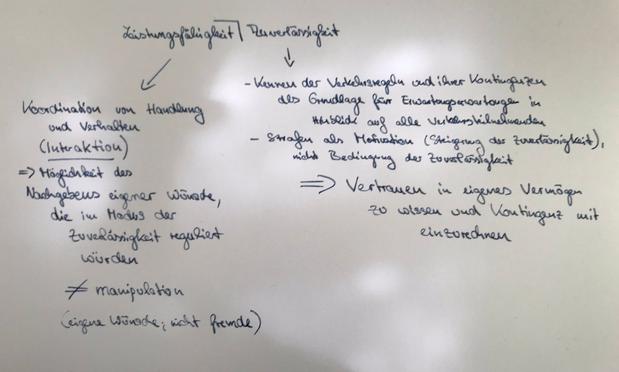 Leistungsfähigkeit Zuverlässigkeit
Koordination von Handlung
und Verhalten
(Interaktion)
=> Möglichkeit des
Nachgebens eigener Wünsche,
die im Modus der
Zuverlässigkeit reguliert
würden
≠ manipulation
(eigene Wünsche; nicht fremde)
- Kennen der Verkehrsregeln und ihrer Kontingenzen
als Grundlage für Erwartungserwartungen in
Hinblick auf alle Verkehrsteilnehmenden
- Strafen als Motivation (Steigerung der Zuverlässigkeit),
nicht Bedingung der Zuverlässigkeit
=> Vertrauen in eigenes Vermögen
zu wissen und Kontingenz mit
einzurechnen